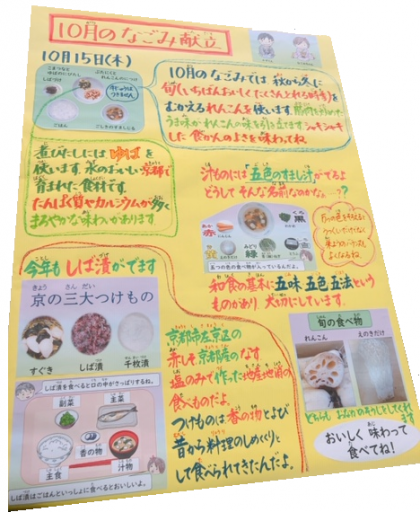 10月のなごみ献立
10月15日(木)
ごはん
しば漬け
10月のなごみでは 秋から冬に
旬(いちばんおいしくたくさんとれる時き)を
むかえるれんこんを使います。
うま味がれんこんの味を引き立てます。シャキシャキ
した食かんのよさを味わってね
煮びたしには ゆばを
使います。水のおいしい京都で
育まれた食材です。
たんぱく質やカルシウムが多く
まろやかな味わいがあります
汁ものには「五色のすまし汁」がでるよ
どうして そんな名前なのかな。??
赤
白
黒
黄
緑
五つの色の食べ物が入っているんだよ。
和食の基本に 五味 五色 五法という
ものがあり 大切にしています。
今年も しば漬がでます
きょう さん だい
京の三大つけもの
すぐき
しば漬
千枚漬
しば漬を食べると口の中がさっぱりするね。
副菜
主菜
香の物
主食
汁物
しば漬はごはんといっしょに食べるとおいしいよ。
京都市左京区の
赤しそ 京都産のなす
塩のみで作った地産地消の
食べものだよ。
つけものは香の物とよび
昔から料理のしめくくりと
して食べられてきたんだよ。
旬の食べ物
れんこん
えのきだけ
どちらも おなかのそうじをしてくれます
おいしく 味わって
食べてね!